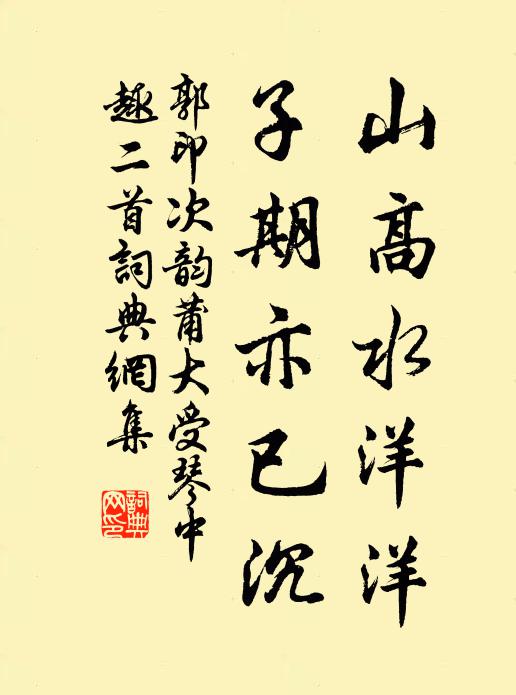 山高水洋洋
子期亦已沉
郭印次韵蒲大受琴中
趣二首詞典網集
詞典網印